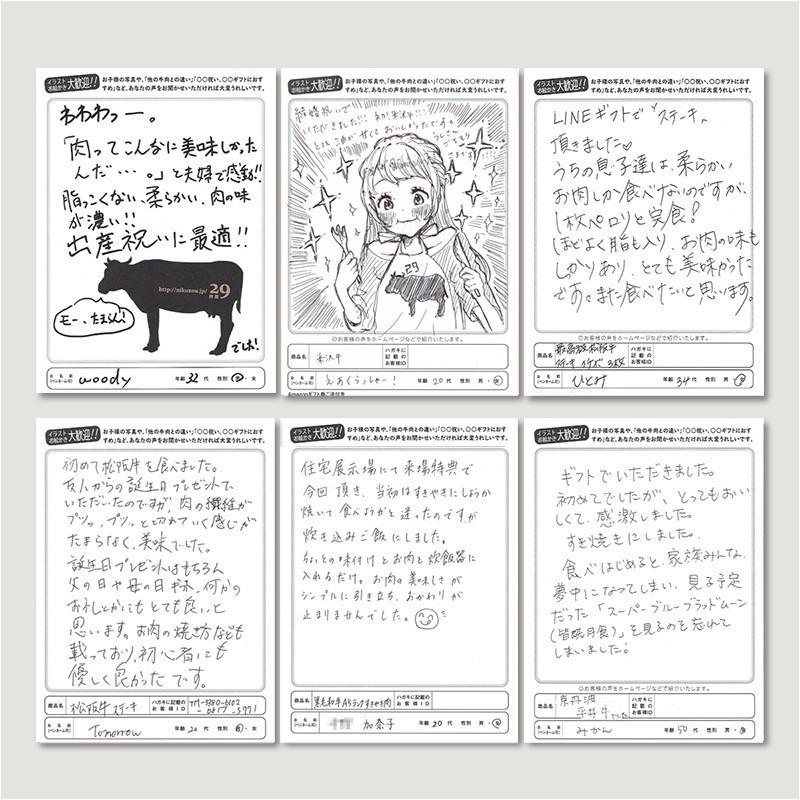 イラスト
お絵かき 大歓迎!!
お子様の写真や、「他の牛肉との違い」「〇〇祝い、〇〇ギフトにおす
すめ」など、あなたの声をお聞かせいただければ大変うれしいです。
わわわっー。
「肉ってこんなに美味しかった
んだ…。」と夫婦で感動!!
脂っこくない、柔らかい、肉の味
が濃い!!
出産祝いに最適!!
http://nikuzou.jp/ 29
モー、たまらん!
でした!
お名前
(ペンネーム可) woody 年齢 32 代 性別 男・女
イラスト
お絵かき 大歓迎!!
お子様の写真や、「他の牛肉との違い」「〇〇祝い、〇〇ギフトにおす
すめ」など、あなたの声をお聞かせいただければ大変うれしいです。
結婚祝いで
いただきました!!!
29
◎お客様の声をホームページなどで紹介いたします。
商品名 米沢牛 ハガキに
記載の
お客様ID
お名前
(ペンネーム可) えあくらっしゃー! 年齢 20 代 性別 男・女
イラスト
お絵かき 大歓迎!!
お子様の写真や、「他の牛肉との違い」「〇〇祝い、〇〇ギフトにおす
すめ」など、あなたの声をお聞かせいただければ大変うれしいです。
LINEギフトで"ステーキ"
頂きました♡
うちの息子達は、柔らかい
お肉しか食べないのですが、
1枚ペロリと完食!
ほどよく脂も入り、お肉の味も
しっかりあり、とても美味かった
です。また食べたいと思います。
◎お客様の声をホームページなどで紹介いたします。
商品名 最高級松阪牛
ステーキ イチボ 3枚 ハガキに
記載の
お客様ID
お名前
(ペンネーム可) ひとみ 年齢 34 代 性別 男・女
イラスト
お絵かき 大歓迎!!
お子様の写真や、「他の牛肉との違い」「〇〇祝い、〇〇ギフトにおす
すめ」など、あなたの声をお聞かせいただければ大変うれしいです。
初めて松阪牛を食べました。
友人からの誕生日プレゼントで
いただいたのですが、肉の繊維が
プツッ、プツッと切れていく感じが
たまらなく、美味でした。
誕生日プレゼントはもちろん
父の日や母の日ギフト、何かの
お礼とかにもとても良いと
思います。お肉の焼き方なども
載っており、初心者にも
優しく良かったです。
商品名 松阪牛ステーキ ハガキに記載の
お客様ID
お名前
(ペンネーム可) Tomorrow 年齢 20 代 性別 男・女
イラスト
お絵かき 大歓迎!!
お子様の写真や、「他の牛肉との違い」「〇〇祝い、〇〇ギフトにおす
すめ」など、あなたの声をお聞かせいただければ大変うれしいです。
住宅展示場にて来場特典で
今回頂き、当初はすきやきにしようか
焼いて食べようかと迷ったのですが
炊き込みご飯にしました。
ちょっとの味付けとお肉を炊飯器に
入れるだけ。お肉の美味しさが
シンプルに引き立ち、おかわりが
止まりませんでした。
商品名 黒毛和牛A5ランクすきやき肉 ハガキに記載の
お客様ID
お名前
(ペンネーム可) 加奈子 年齢 20 代 性別 男・女
イラスト
お絵かき 大歓迎!!
お子様の写真や、「他の牛肉との違い」「〇〇祝い、〇〇ギフトにおす
すめ」など、あなたの声をお聞かせいただければ大変うれしいです。
ギフトでいただきました。
初めてでしたが、とってもおい
しくて、感激しました。
すき焼きにしました。
食べはじめると、家族みんな、
夢中になってしまい、見る予定
だった「スーパーブルーブラッドムーン
(皆既月食)」を見るのを忘れて
しまいました!
◎お客様の声をホームページなどで紹介いたします。
商品名 京丹波
平井牛でした ハガキに
記載の
お客様ID
お名前
(ペンネーム可) みかん 年齢 50 代 性別 男・女